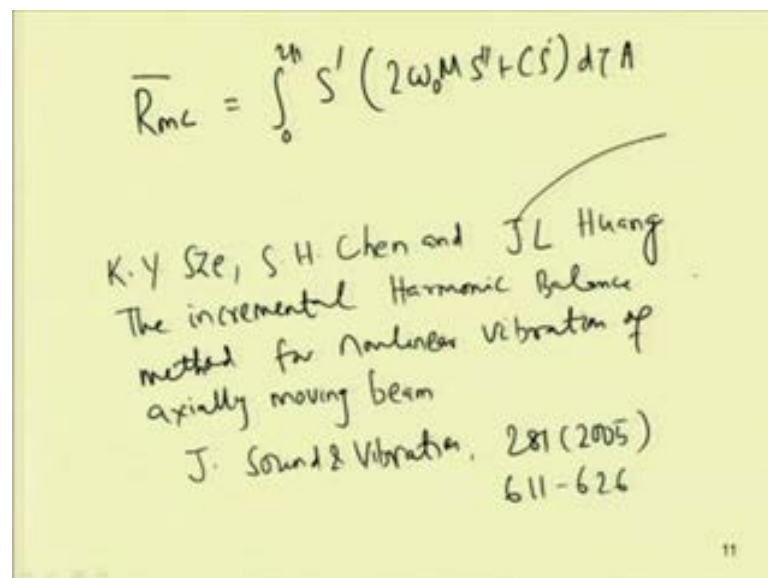 R̅mc = ∫₀²ᴨ S' (2ω₀M S'' + C S') dτ A
K. Y Sze, S H. Chen and J L Huang
The incremental Harmonic Balance
method for nonlinear vibration of
axially moving beam
J. Sound & Vibration, 281 (2005)
611-626
11